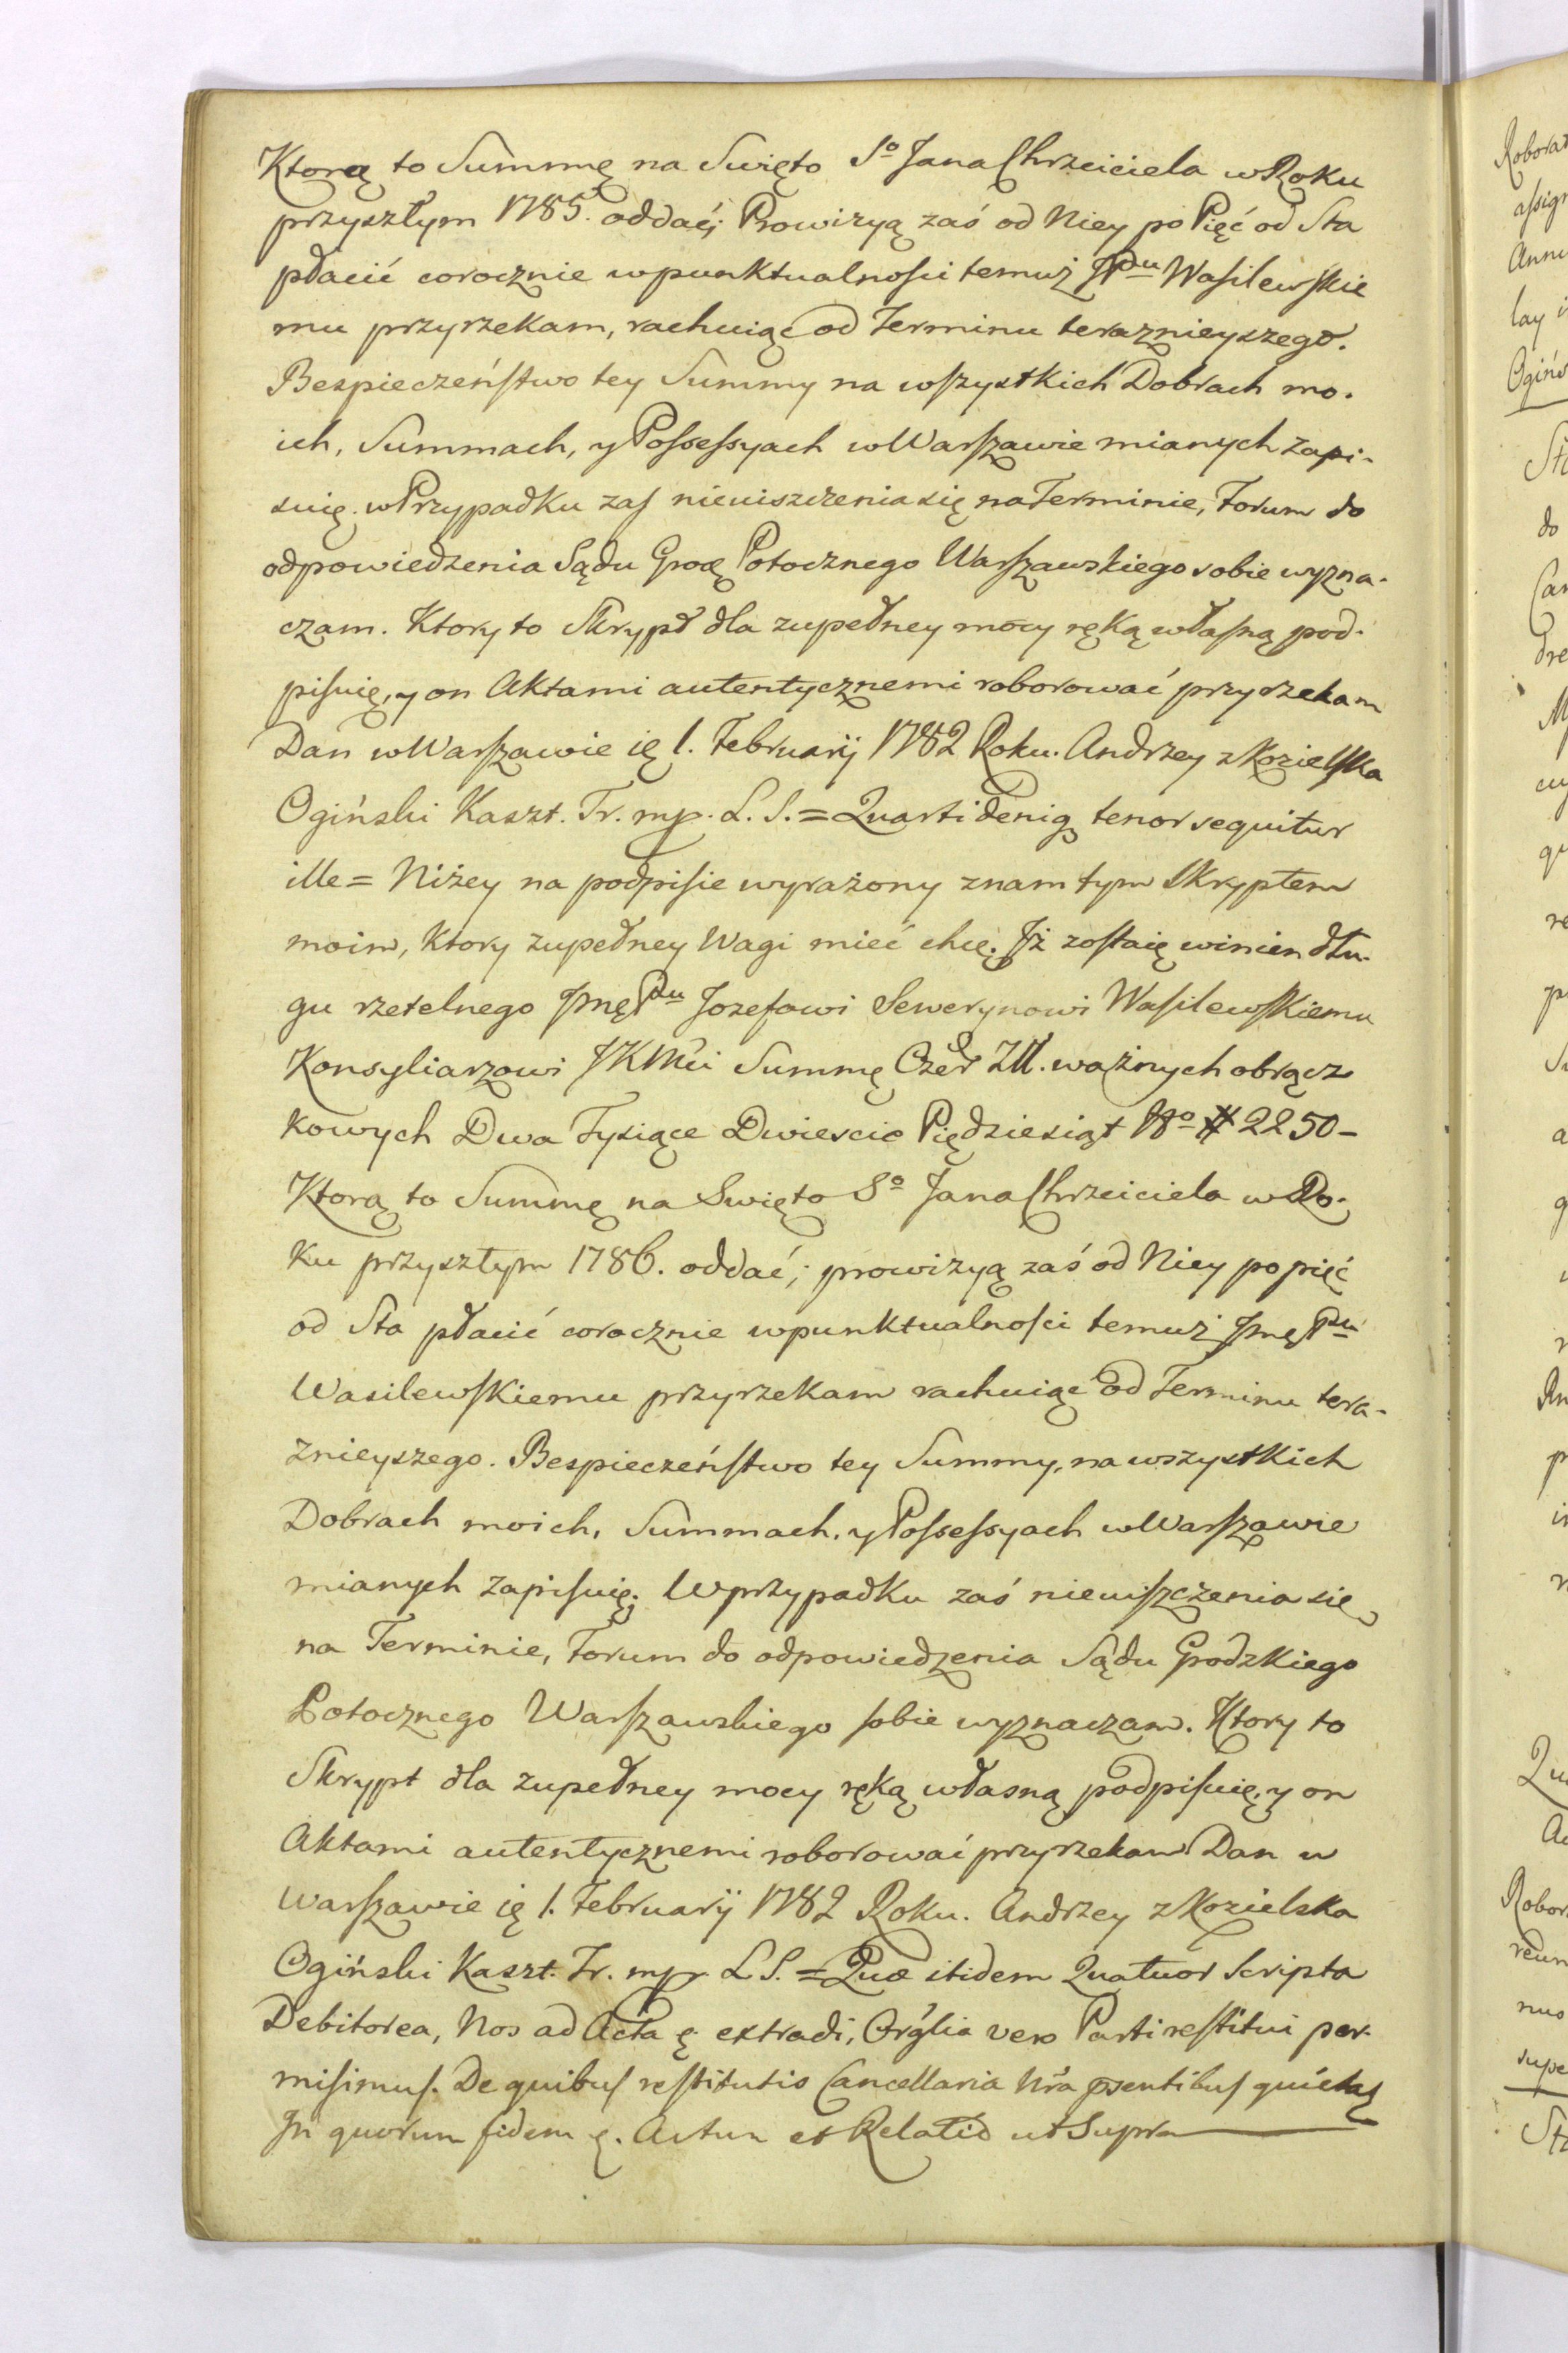 Ktorą to Summę na Swięto So Jana Chrzciciela w Roku
przyszłym 1785. oddać; Prowizyą zaś od Niey po Pięć od Sta
płacić corocznie w punktualnosci temuż JPu Wasilewskie
mu przyrzekam, rachuiąc od Terminu teraznieyszego.
Bezpieczeństwo tey Summy na wszystkich Dobrach mo-
ich, Summach, y Possessyach w Warszawie mianych zapi-
suię. w Przypadku zas nieuiszczenia się na Terminie, Forum do
odpowiedzenia Sądu Grodz Potocznego Warszawskiego sobie wyzna-
czam. Ktory to Skrypt dla zupełney mocy ręką własną pod-
pisuię, y on Aktami autentycznemi roborować przyrzekam
Dan w Warszawie ię 1. Februarij 1782 Roku. Andrzey z Kozielska
Ogiński Kaszt. Tr. mp. L. S. = Quarti deniq tenor sequitur
ille = Niżey na podpisie wyrażony znam tym Skryptem
moim, Ktory zupełney Wagi mieć chcę. Jż zostaię winien dłu-
gu rzetelnego Jmę Pu Jozefowi Sewerynowi Wasilewskiemu
Konsyliarzowi JKMci Summę Czer Zll. ważnych obrącz
kowych Dwa Tysiące Dwiescie Piędziesiąt No # 2250 -
Ktorą to Summę na Swięto So Jana Chrzciciela w Ro-
ku przyszłym 1786. oddać; prowizyą zaś od Niey po pięć
od Sta płacić corocznie w punktualnosci temuż Jmę Pu
Wasilewskiemu przyrzekam rachuiąc od Terminu tera-
znieyszego. Bespieczeństwo tey Summy, na wszystkich
Dobrach moich, Summach, y Possessyach w Warszawie
mianych zapisuię; W przypadku zaś nieuiszczenia się
na Terminie, Forum do odpowiedzenia Sądu Grodzkiego
Potocznego Warszawskiego sobie wyznaczam. Ktory to
Skrypt dla zupełney mocy ręką własną podpisuię, y on
Aktami autentycznemi roborować przyrzekam Dan w
Warszawie ię 1. Februarij 1782 Roku. Andrzey z Kozielska
Ogiński Kaszt. Tr. mp. L S. = Quæ itidem Quatuor Scripta
Debitorea, Nos ad Acta ę. extradi, Orglia vero Parti restitui per-
misimus. De quibus restitutis Cancellaria Nra psentibus quietaț
Jn quorum fidem ę. Actum et Relatio ut Supra